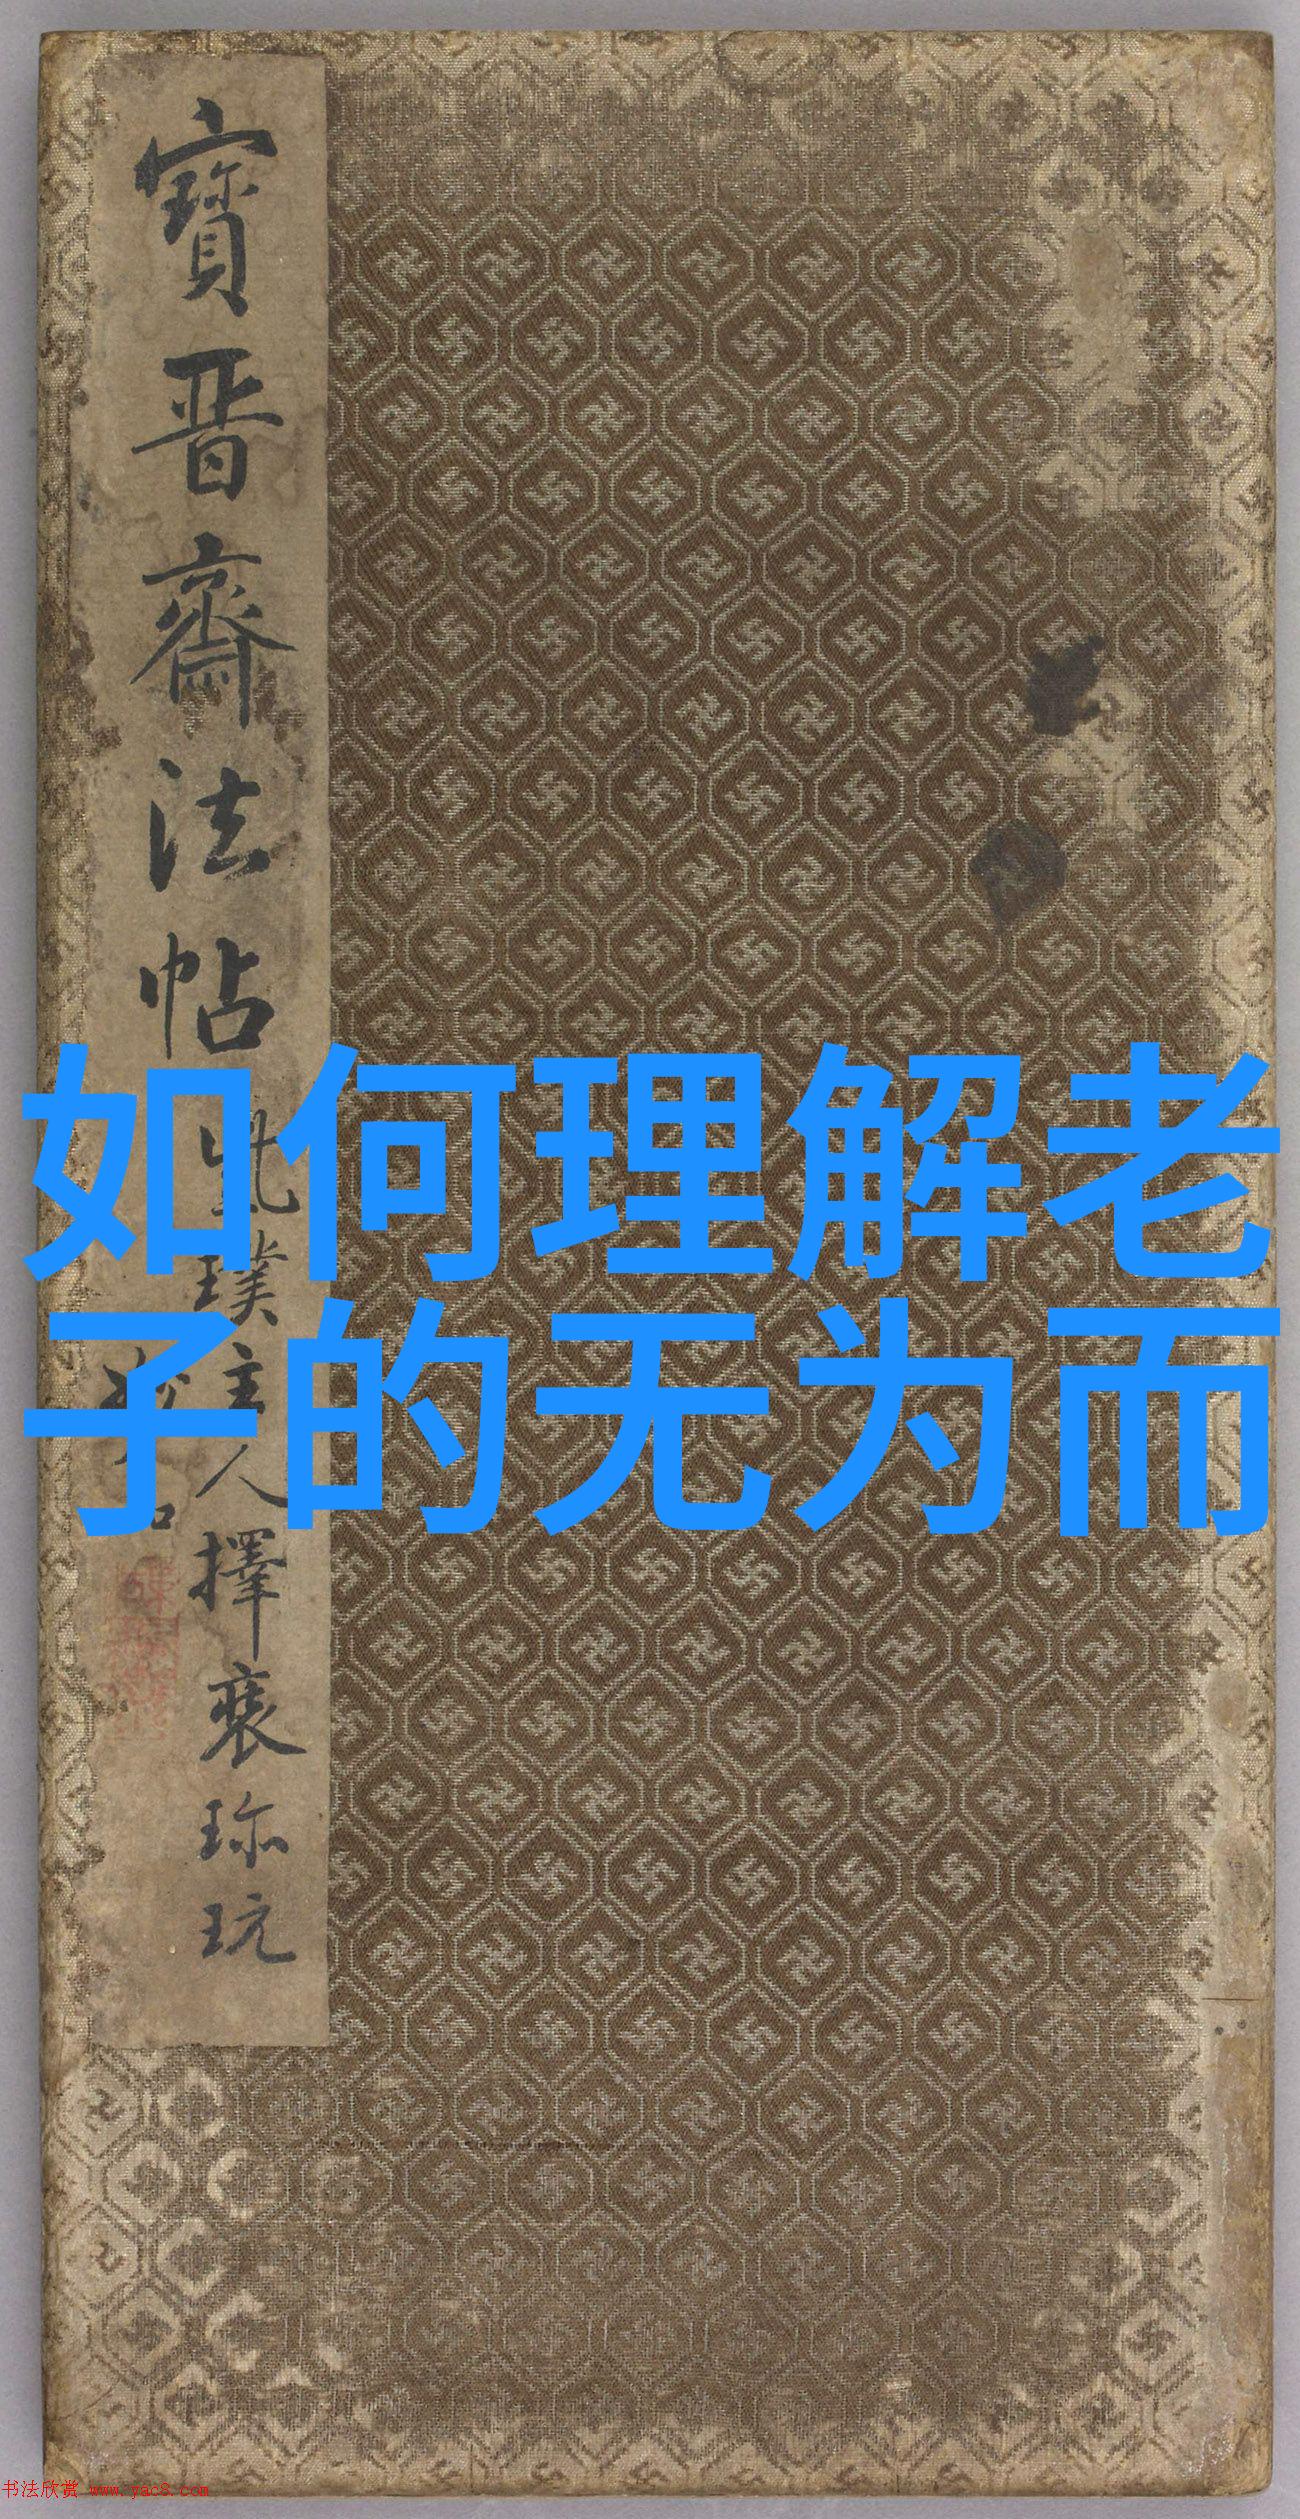 寶晉齋法帖
璞主人擇裘珎玩
如何理解老
子的无为而
书法欣赏 www.yac8.com